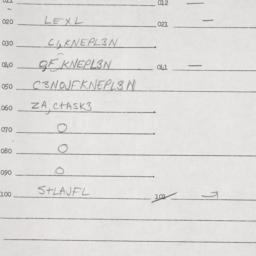 012 —
020 LEXL 021 —
030 C4KNEPL3N
040 GF,KNEPL3N 041 —
050 C3NOJFKNEPL3N
060 ZA,C+ASK3
070 O
080 O
090 O
100 S+LAJFL 102